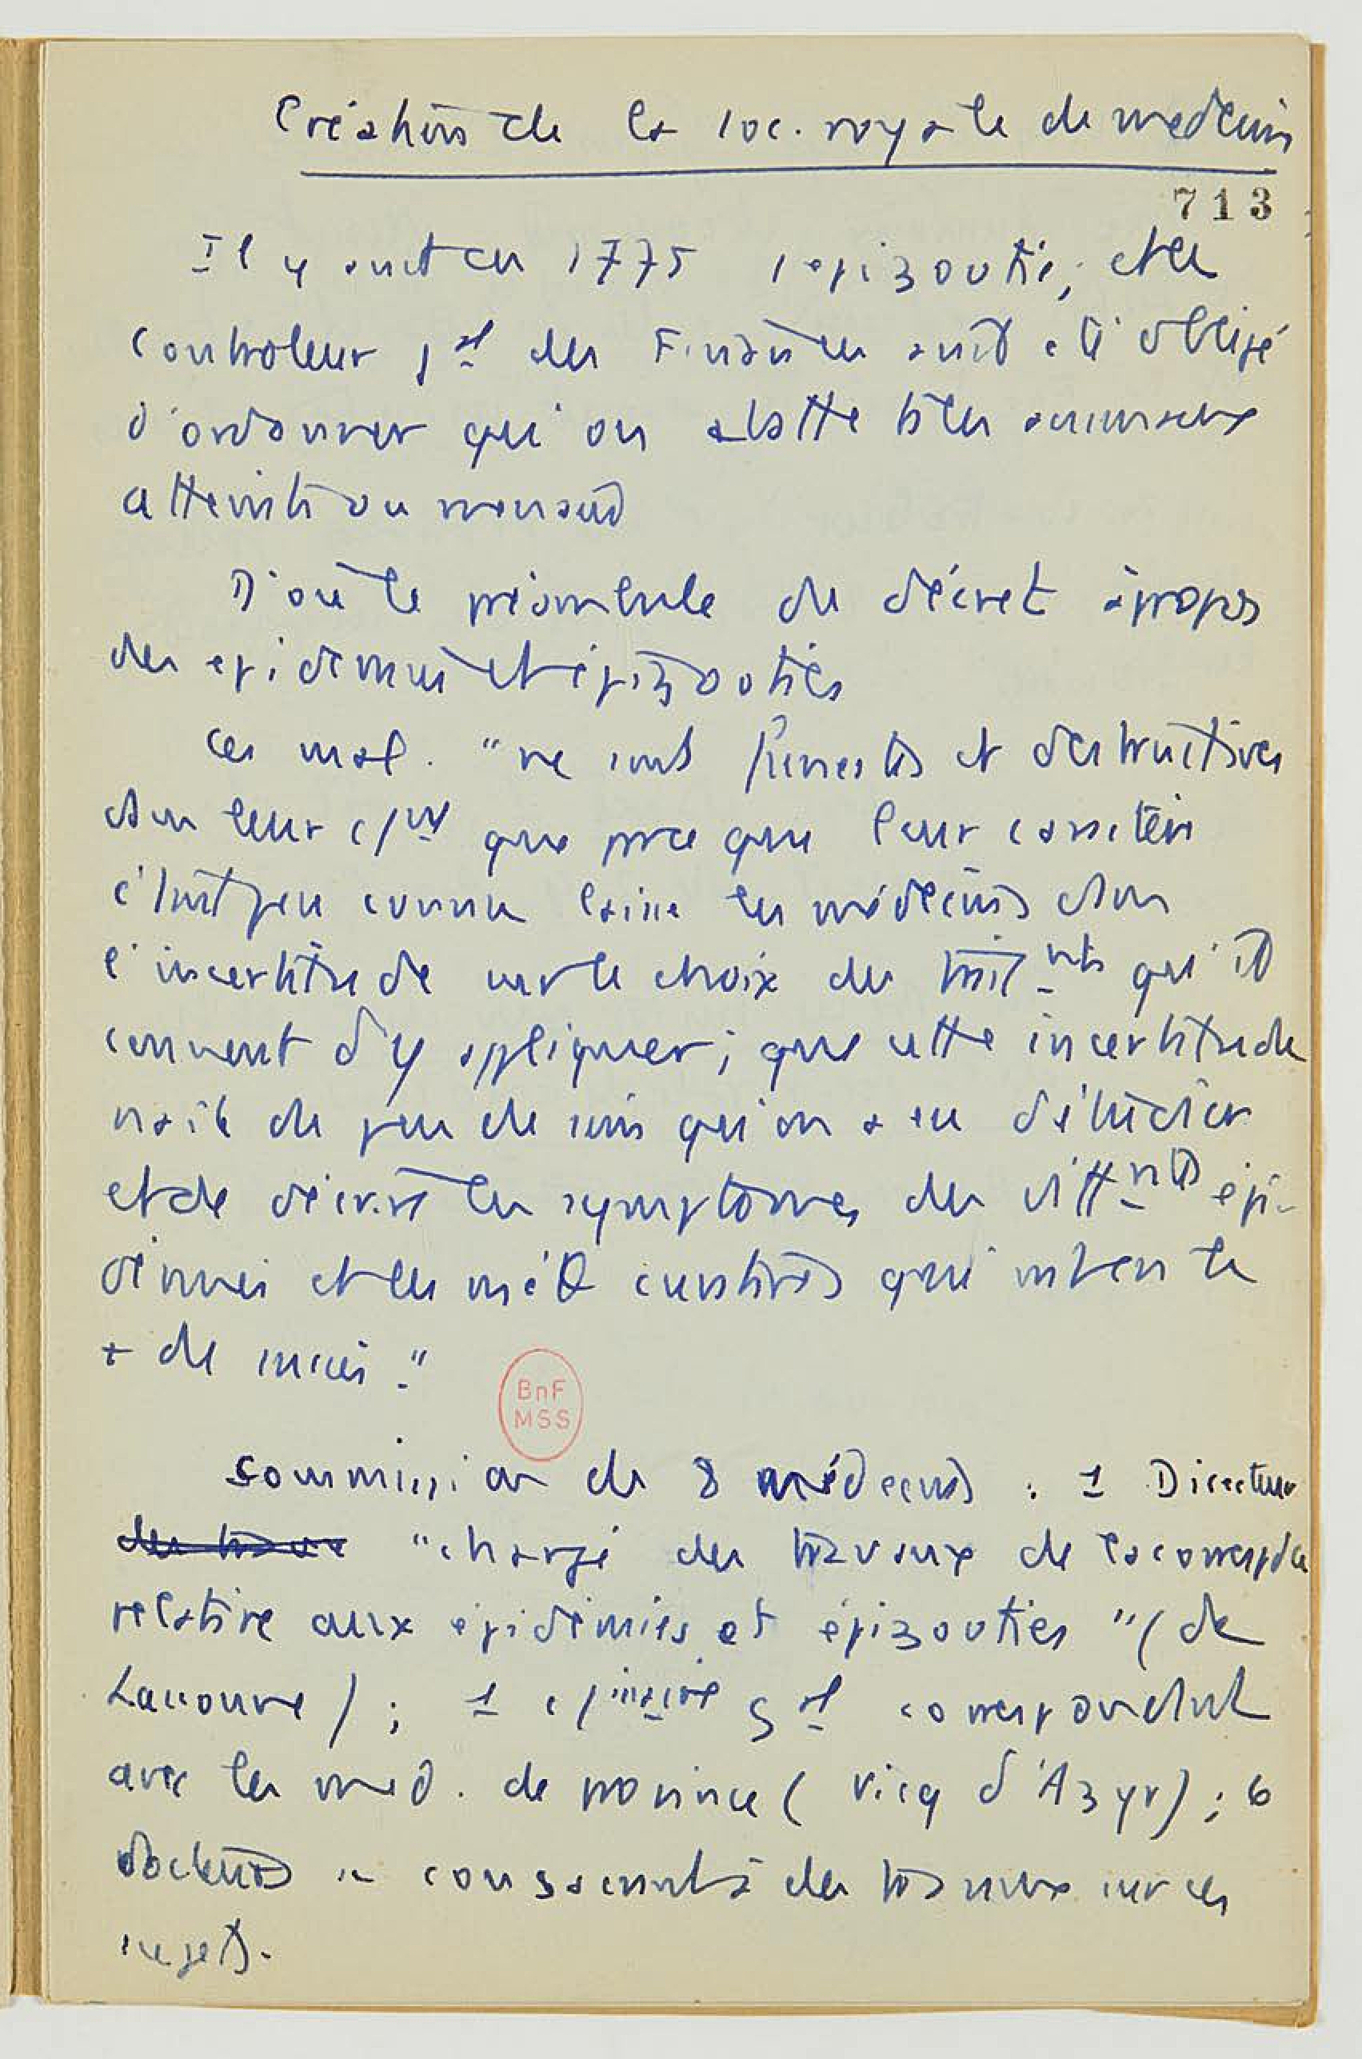 Création de la soc. royale de médecine
713
Il y avait en 1775 1 épizootie, et le
Controleur gal des Finances avait été obligé
d'ordonner qu'on abatte ts les animaux
atteints ou menacés
D'où le préambule du décret à propos
des épidémies et épizooties
Ces mal. "ne sont funestes et destructives
dans leur cᵗ que parce que leur caractère
étant peu connu laisse les médecins dans
l'incertitude sur le choix des traitmnts qu'il
convient d'y appliquer ; que cette incertitude
naît du peu de soin qu'on a eu d'étudier
et de décrire les symptômes des difftnts épi-
démies et les méth curatives qui ont eu le
+ de succès."
BnF
MSS
Commission de 8 médecins : 1 Directeur
des travaux "chargé des travaux de la correspdce
relative aux épidémies et épizooties" (de
Lassonne) ; 1 cmissaire gal correspondant
avec les med. de province (Vicq d'Azyr) ; 6
docteurs se consacrant à des travaux sur ces
sujets.